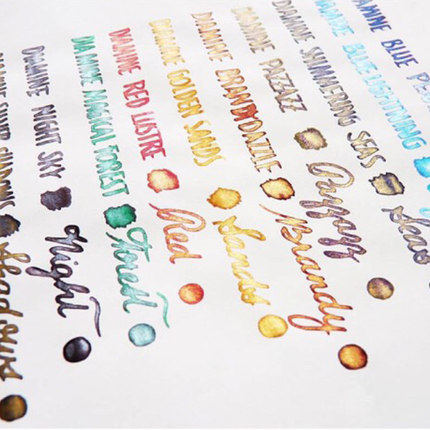 SHADOWS Shadows
DIAMINE NIGHT SKY Night
DIAMINE MAGICAL FOREST Forest
DIAMINE RED LUSTRE Red
DIAMINE GOLDEN SANDS Sands
DIAMINE BRANDY DAZZLE Brandy
DIAMINE PAZZAZZ
DIAMINE SHIMMERING SEAS Seas
BLUE LIGHTNING
DIAMINE BLUE